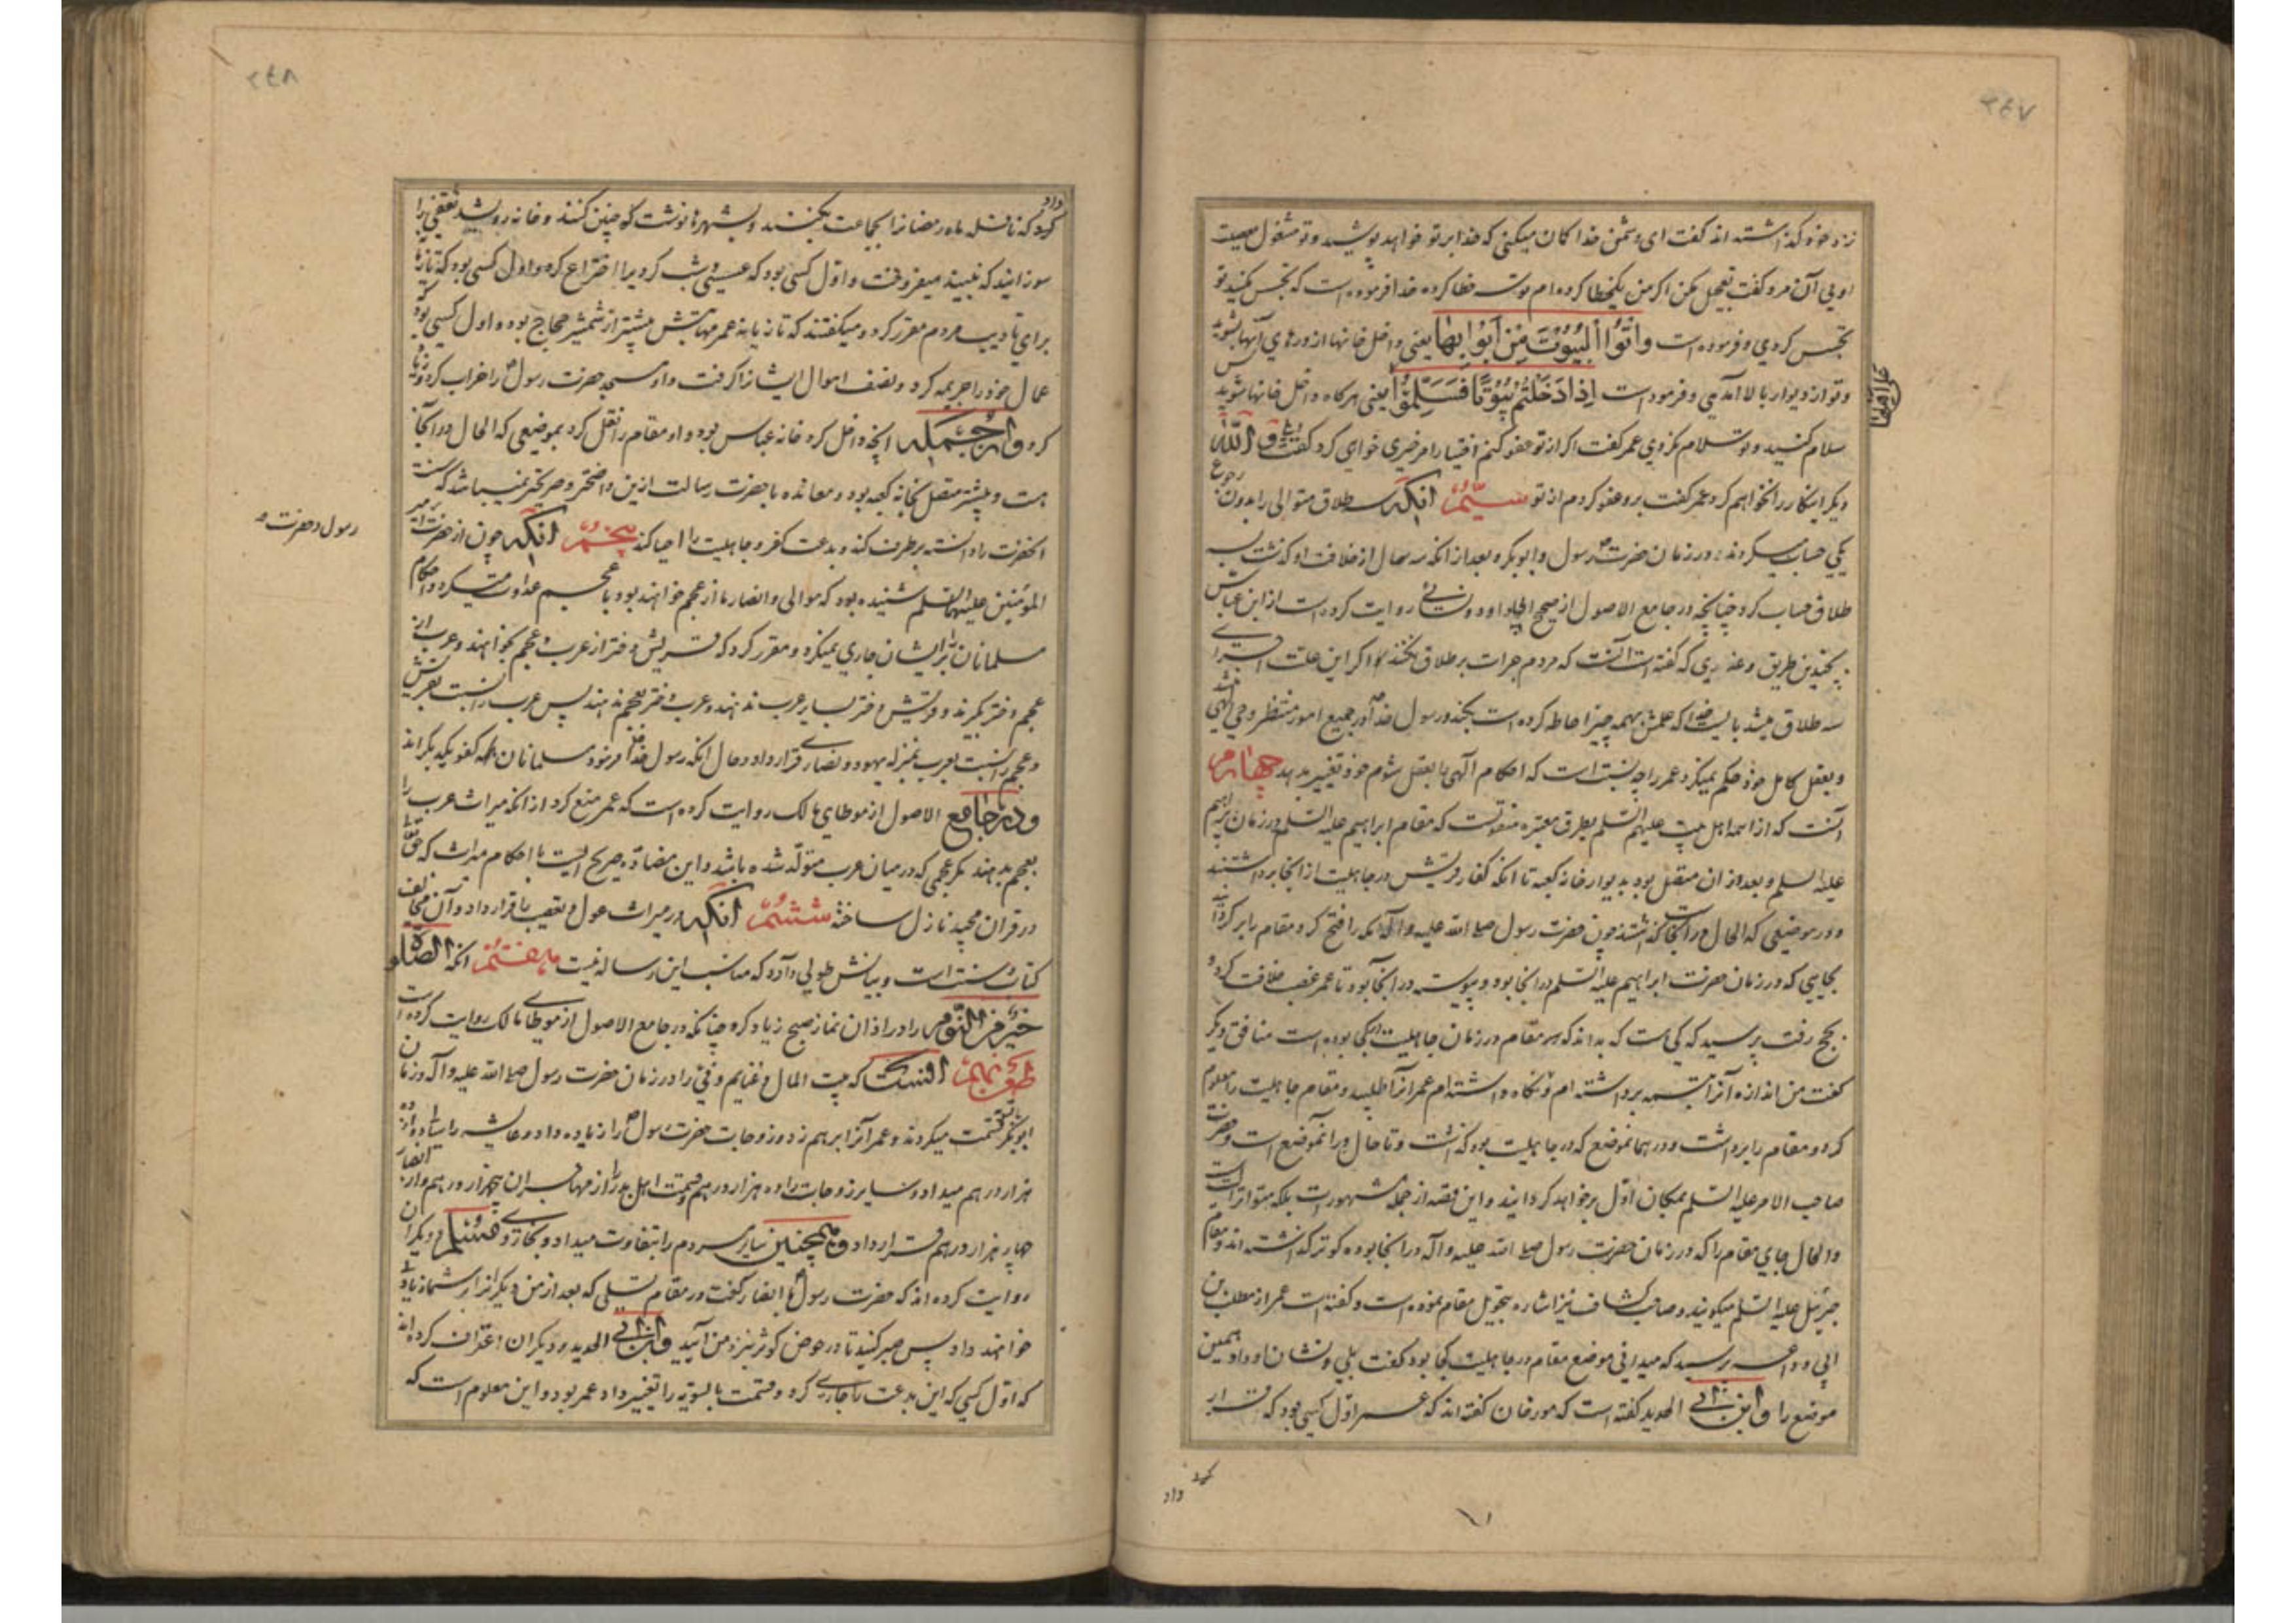 ۲۴۷
نزد خود گذاشته اند گفت ای دشمن خدا گمان میکنی که خدا بر تو خواهد پوشید و تو مشغول معصیت
اویی آن مرد گفت تعجیل مکن اگر من یکخطا کرده‌ام تو سه خطا کرده خدا فرموده است که تجسس مکنید تو
تجسس کردی و فرموده است وَاتُوا الْبُیُوتَ مِنْ اَبْوابِها یعنی داخل خانها از درهای آنها بشوید
و تو از دیوار بالا آمدی و فرموده است اِذا دَخَلْتُم بُیُوتًا فَسَلِّمُوا یعنی هرگاه داخل خانها شوید پس
سلام کنید و تو سلام نکردی عمر گفت اگر از تو عفو کنم آیا مرا خیری خواهی کرد گفت بلی و الله
دیگر اینکار را نخواهم کرد عمر گفت برو عفو کردم از تو سیّم آنکه سه طلاق متوالی را بدون رجوع
یکی حساب میکردند در زمان حضرت رسول و ابوبکر و بعد از آنکه سه سال از خلافت او گذشت سه
طلاق حساب کرد چنانچه در جامع الاصول از صحیح ابی داود و نسائی روایت کرده است از ابن عباس
بچندین طریق و عذری که گفته است آنست که مردم جرأت بر طلاق نکنند و اگر این علت
سه طلاق میشد بایست خدا که علمش بهمه چیز احاطه کرده است بکند و رسول خدا در جمیع امور منتظر وحی الهی میشد
و بعقل کامل خود حکم نمیکرد عمر را چه نسبت است که احکام الهی را بعقل شوم خود تغییر بدهد چهارم
آنست که از ائمه اهل بیت علیهم السلم بطرق معتبره منقولست که مقام ابراهیم علیه السلم در زمان ابراهیم
علیه السلم و بعد از ان متصل بود بدیوار خانه کعبه تا آنکه کفار قریش در جاهلیت از آنجا برداشتند
و در موضعی که الحال در آنجاست گذاشتند چون حضرت رسول صلی الله علیه و آله مکه را فتح کرد مقام را برگردانید
بجایی که در زمان حضرت ابراهیم علیه السلم در انجا بود و پیوسته در انجا بود تا عمر غصب خلافت کرد و
بحج رفت پرسید که کی است که بداند که مقام در زمان جاهلیت کجا بوده است منافق دیگر
گفت من اندازه آنرا بتسمه برداشته‌ام و نگاه داشته‌ام عمر آنرا طلبید و مقام جاهلیت را معلوم
کرد و مقام را برداشت و در همانموضع که در جاهلیت بود گذاشت و تا حال در آنموضع است و حضرت
صاحب الامر علیه السلم بمکان اول برخواهد گردانید و این قصه از جمله مشهورات بلکه متواترات است
والحال جای مقام را که در زمان حضرت رسول صلی الله علیه و آله در انجا بوده گودتر گذاشته اند و مقام
جبرئیل علیه السلم میگویند و صاحب کشاف نیز اشاره بتحویل مقام نموده است و گفته است عمر از مطلب بن
ابی وداعه پرسید که میدانی موضع مقام در جاهلیت کجا بود گفت بلی و نشان او داد همین
موضع را و ابن ابی الحدید گفته است که مورخان گفته اند که عمر اول کسی بود که قرار
داد
۲۴۸
کرد که نافله ماه رمضانرا بجماعت بکنند و بشهرها نوشت که چنین کنند و خانه رویشد ثقفی را
سوزانید که نبیذ میفروخت و اول کسی بود که عسسی شب کردن را اختراع کرد و اول کسی بود که تازیانه
برای تادیب مردم مقرر کرد و میگفتند که تازیانه عمر مهابتش بیشتر از شمشیر حجاج بود و اول کسی بود که
عمال خود را جریمه کرد و نصف اموال ایشانرا گرفت و او مسجد حضرت رسول را خراب کرد و زیاد
کرد و از جمله آنچه داخل کرد خانه عباس بود و او مقام را نقل کرد بموضعی که الحال در آنجا
است و پیشتر متصل بخانه کعبه بود و معانده با حضرت رسالت ازین واضحتر و صریحتر نمیباشد که سنت
آنحضرت را دانسته برطرف کند و بدعت کفر و جاهلیت را احیا کند پنجم آنکه چون از حضرت امیر
المؤمنین علیه السلم شنیده بود که موالی و انصار ما از عجم خواهند بود با عجم عداوت میکرد و احکام
رسول و حضرت
مسلمانان بر ایشان جاری نمیکرد و مقرر کرد که قریش دختر از عرب و عجم بخواهند و عرب از
عجم دختر بگیرند و قریش دختر بسایر عرب ندهند و عرب دختر بعجم ندهند پس عرب را نسبت بقریش
و عجم را نسبت بعرب بمنزله یهود و نصاری قرار داد و حال آنکه رسول خدا فرمود مسلمانان همه کفو یکدیگر اند
و در جامع الاصول از موطای مالک روایت کرده است که عمر منع کرد از آنکه میراث عرب را
بعجم بدهند مگر عجمی که در میان عرب متولد شده باشد و این مضاده صریح است با احکام میراث که حق تعالی
در قران مجید نازل ساخته ششم آنکه در میراث عول و تعصیب را قرار داد و آن مخالف
کتاب و سنت است و بیانش طولی دارد که مناسب این رساله نیست هفتم آنکه الصلوة
خَیْر مِنَ النَّوم را در اذان نماز صبح زیاد کرد چنانکه در جامع الاصول از موطای مالک روایت کرده است
طعن نهم آنست که بیت المال و غنایم و فیء را در زمان حضرت رسول صلی الله علیه و آله و زمان
ابوبکر بالسویه قسمت میکردند و عمر آنرا برهم زد و زوجات حضرت رسول را زیاده داد و عایشه را دوازده
هزار درهم میداد و سایر زوجات را ده هزار درهم و قیمت اهل بدر را از مهاجران پنجهزار درهم و از انصار
چهار هزار درهم قرار داد و همچنین سایر مردم را بتفاوت میداد و بخاری و مسلم و دیگران
روایت کرده اند که حضرت رسول با انصار گفت در مقام تسلی که بعد از من دیگرانرا از شما زیادتی
خواهند داد پس صبر کنید تا در حوض کوثر نزد من آیید و ابن ابی الحدید و دیگران اعتراف کرده اند
که اول کسی که این بدعت را جاری کرد و قسمت بالسویه را تغییر داد عمر بود و این معلوم است که